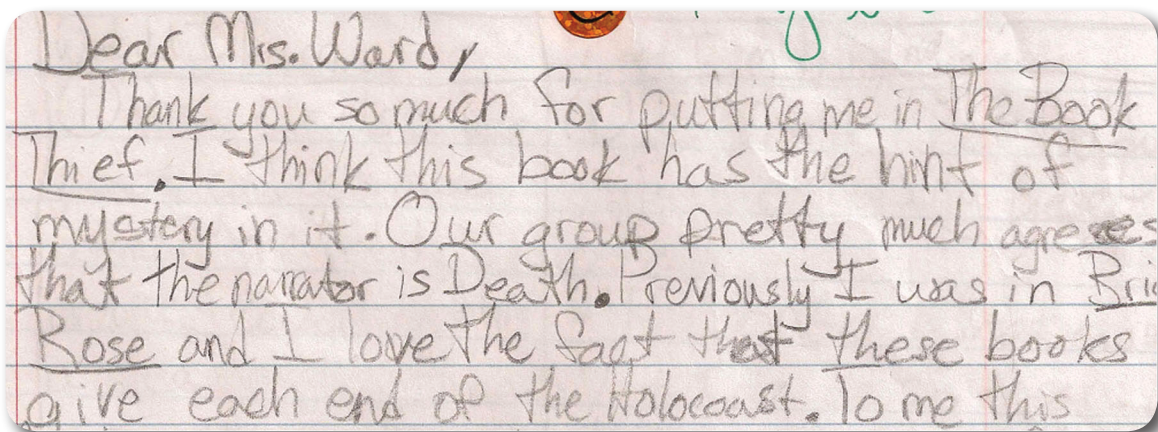 Dear Mrs. Ward,
Thank you so much for putting me in The Book
Thief. I think this book has the hint of
mystery in it. Our group pretty much agrees
that the narrator is Death. Previously I was in Bri
Rose and I love the fact that these books
give each end of the Holocoast. To me this